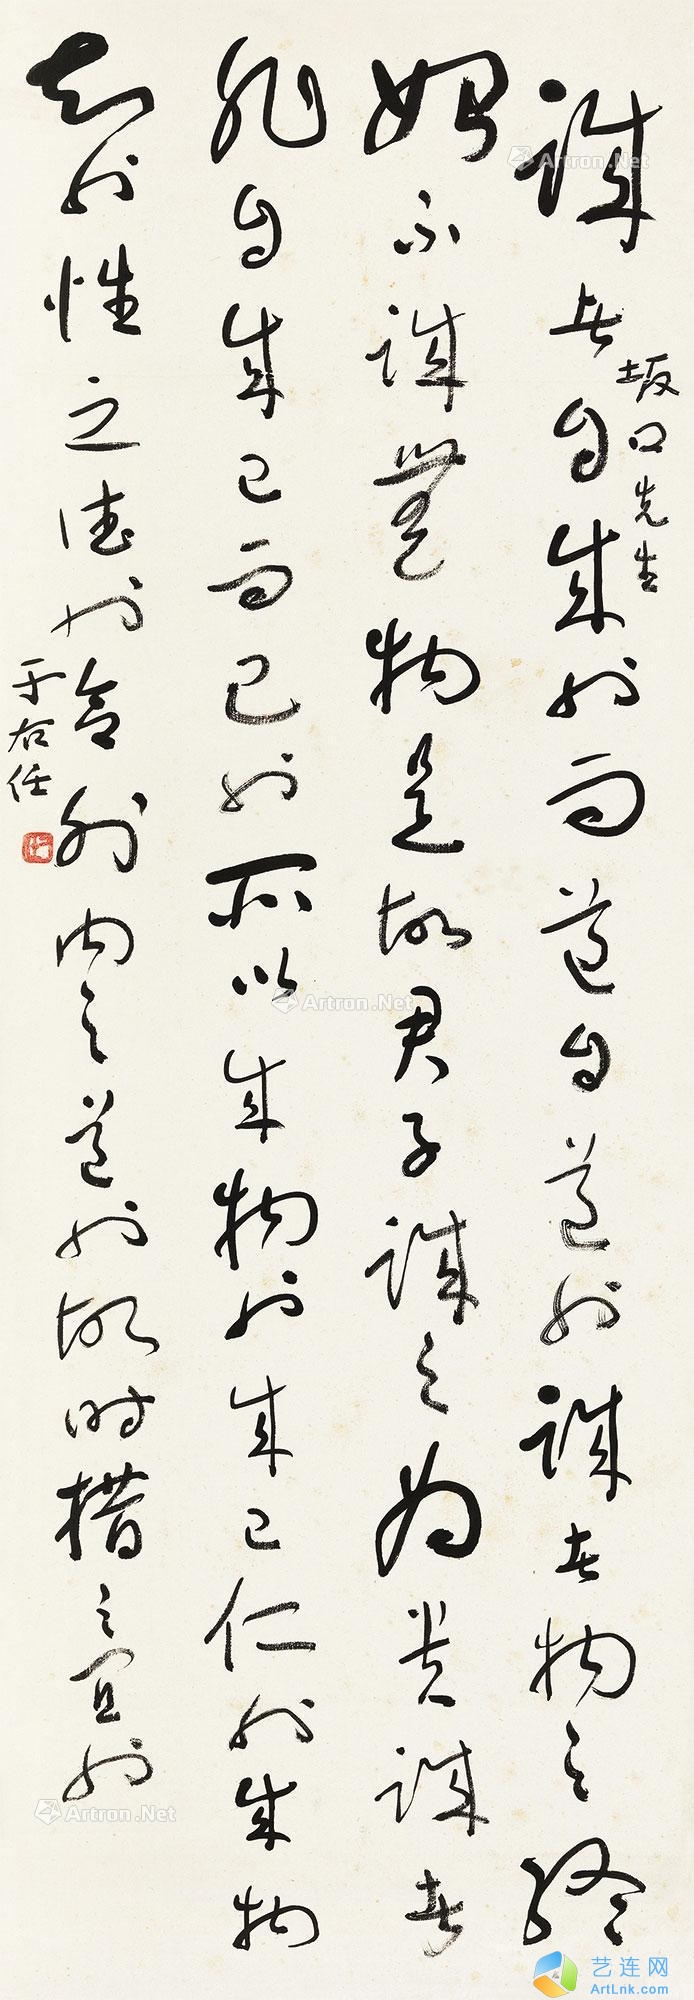 坂口先生
誠者自成也而道自道也誠者物之終
始不誠無物是故君子誠之為貴誠者
非自成己而已也所以成物也成己仁也成物
知也性之德也合外內之道也故時措之宜也
于右任
Artron.Net
Artron.Net
Artron.Net
Artron.Net
艺连网
ArtLnk.com